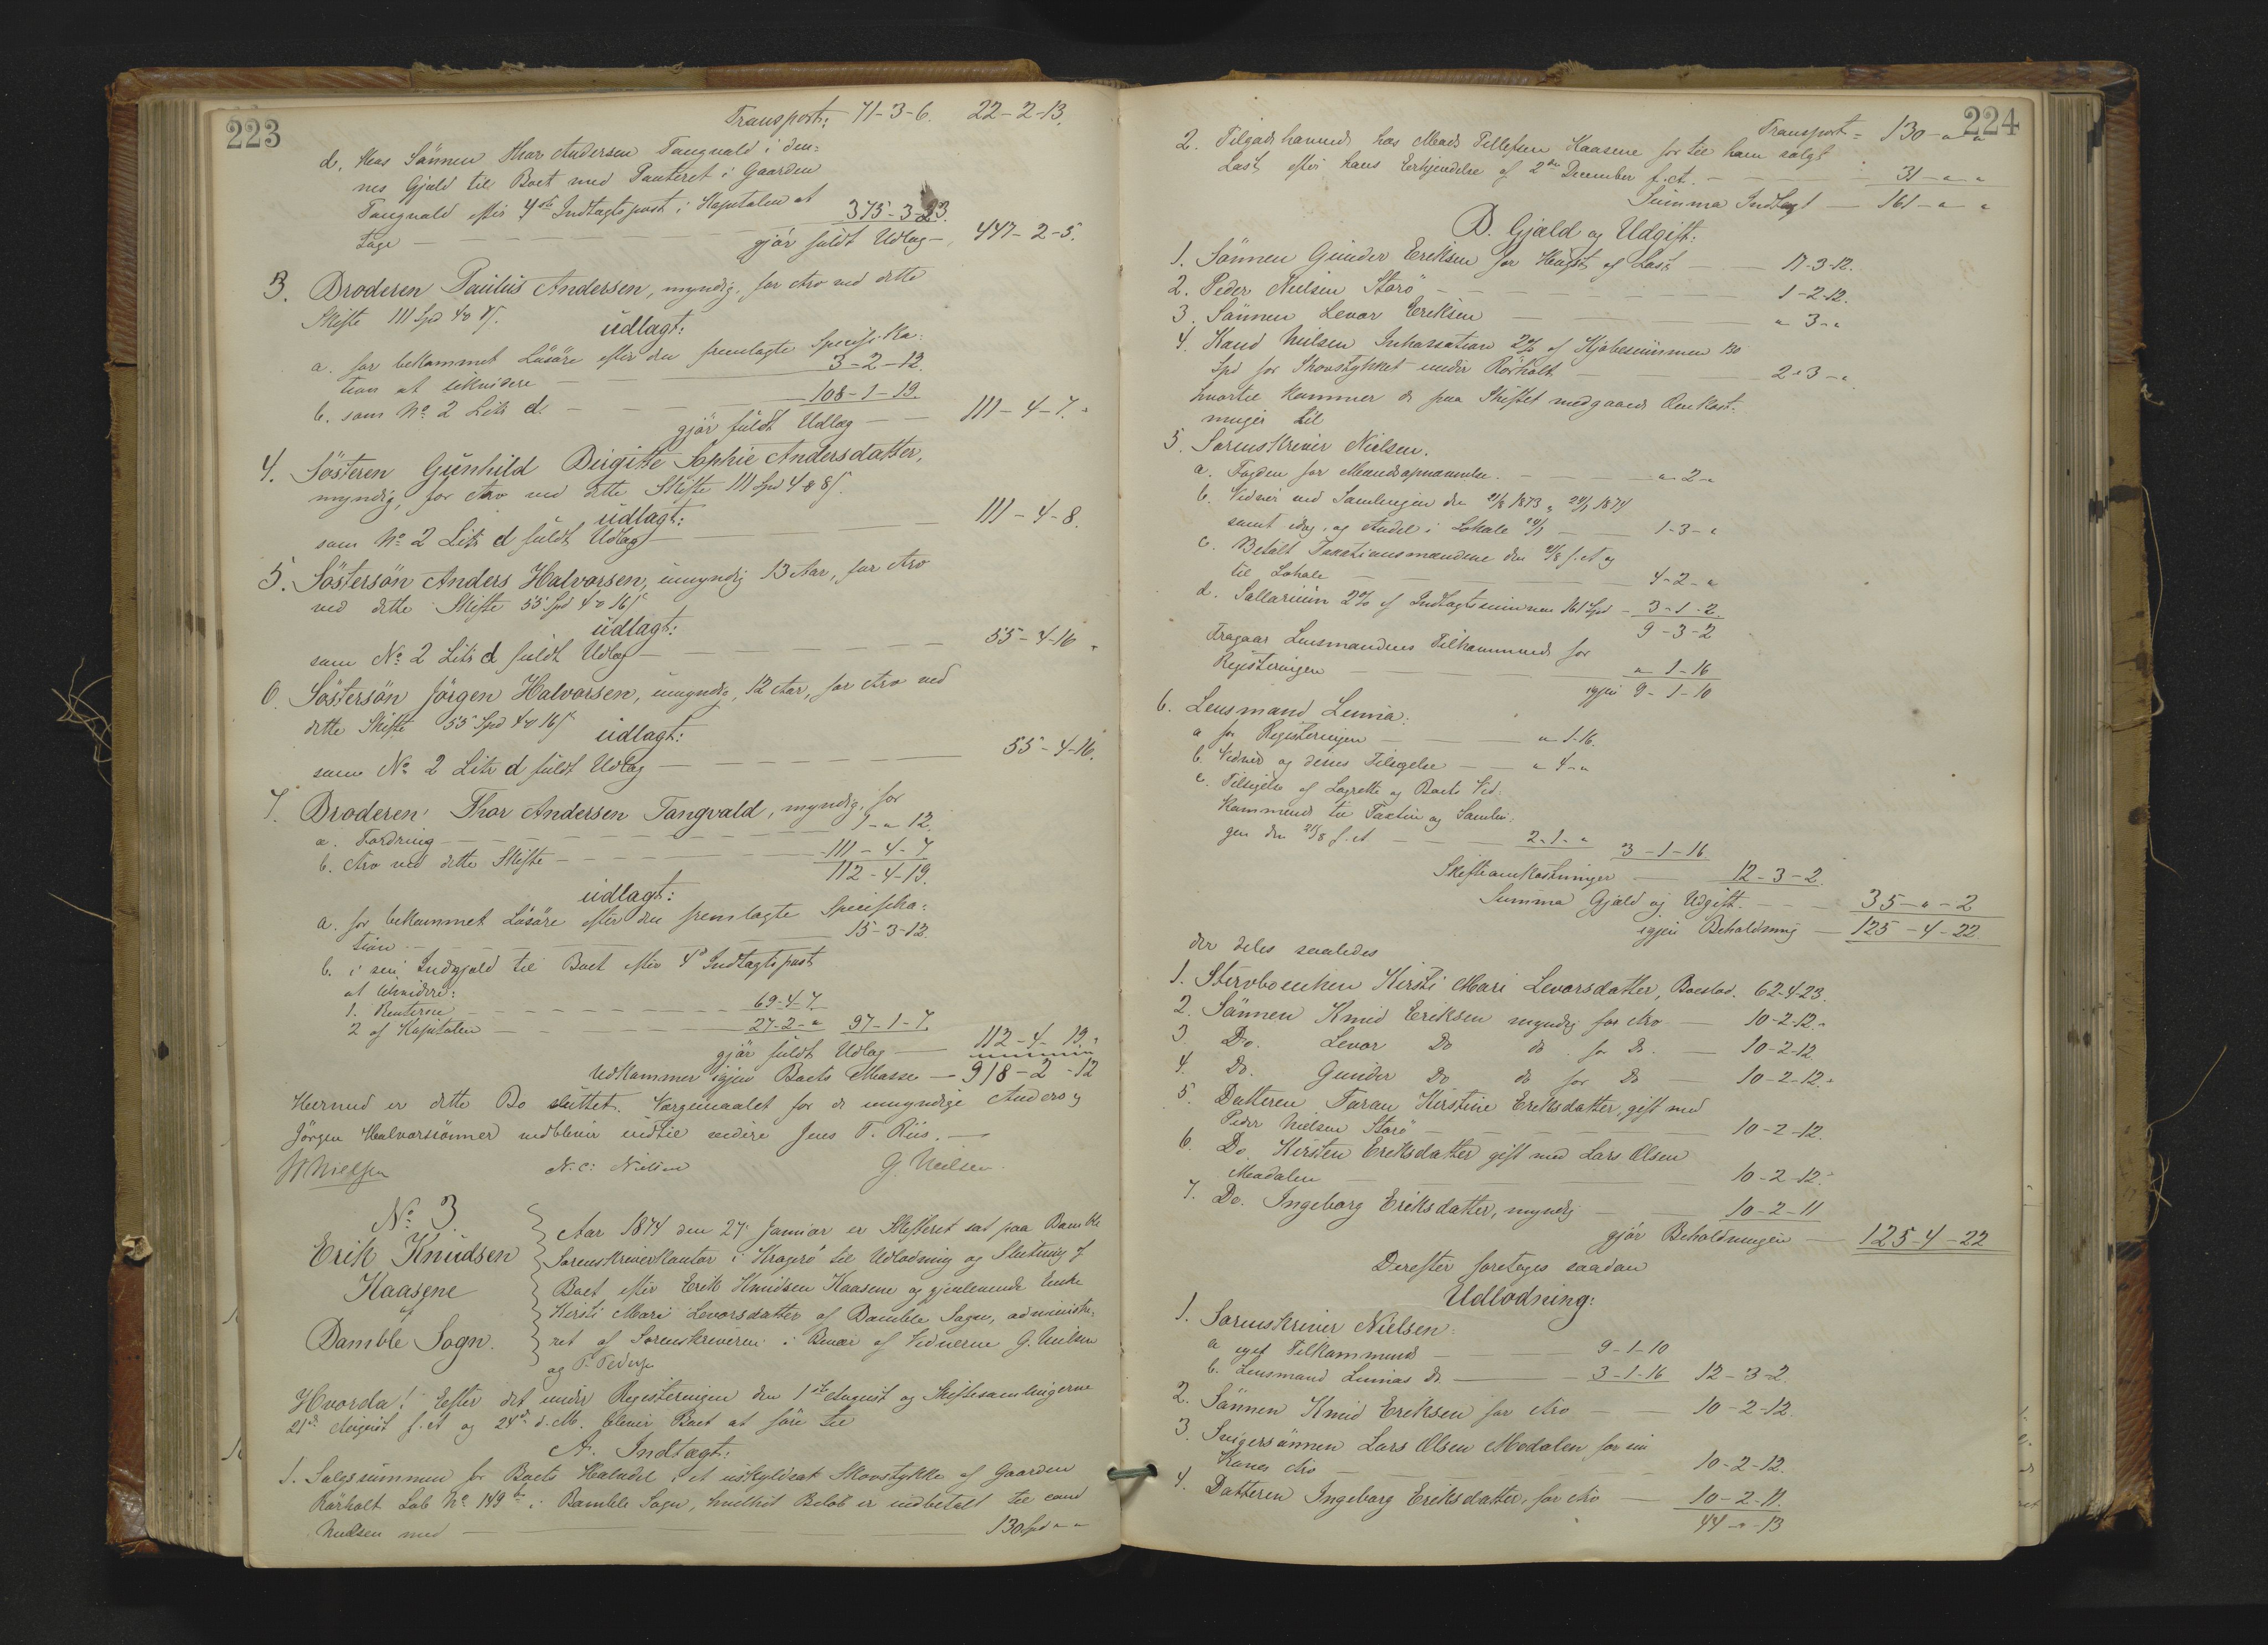 223
Transport: 71-3-6. 22-2-13.
d. Hos Sönnen Thor Andersen Tangvald i den-
nes Gjæld til Boet med Panteret i Gaarden
Tangvald efter 4de Indtægtspost i Kapitalen at
tage — 375-3-23.
gjör fuldt Udlæg — 447-2-5.
3. Broderen Paulus Andersen, myndig, for Arv ved dette
Skifte 111 Spd 4 o 7 f.
udlagt:
a. for bekommet Lösöre efter den fremlagte Specifika-
tion at likvidere — 3-2-12.
b. som No 2 Litr d. — 108-1-19.
gjör fuldt Udlæg — 111-4-7.
4. Sösteren Gunhild Birgitte Sophie Andersdatter,
myndig, for Arv ved dette Skifte 111 Spd 4 o 8 f.
udlagt:
som No 2 Litr d fuldt Udlæg — 111-4-8.
5. Söstersön Anders Halvorsen, umyndig 13 Aar, for Arv
ved dette Skifte 55 Spd 4 o 16 f
udlagt:
som No 2 Litr d fuldt Udlæg — 55-4-16
6. Söstersön Jörgen Halvorsen, umyndig, 12 Aar, for Arv ved
dette Skifte 55 Spd 4 o 16 f
udlagt:
som No 2 Litr d fuldt Udlæg — 55-4-16.
7. Broderen Thor Andersen Tangvald, myndig, for
a. Fordring — 1-"-12.
b. Arv ved dette Skifte — 111-4-7
112-4-19.
udlagt:
a. for bekommet Lösöre efter den fremlagte Specifika-
tion — 15-3-12.
b. i sin Indgjæld til Boet efter 4de Indtægtspost
at likvidere:
1. Renterne — 69-4-7
2 af Kapitalen — 27-2-" 97-1-7.
gjör fuldt Udlæg — 112-4-19.
Udkommer igjen Boets Masse — 918-2-12
Hermed er dette Bo sluttet. Værgemaalet for de umyndige Anders og
Jörgen Halvorsönner vedbliver indtil videre Jens T. Riis. —
N. C. Nielsen G. Neilsen
No 3.
Erik Knudsen
Kaasene
af
Bamble Sogn.
Aar 1874 den 27 Januar er Skifteret sat paa Bamble
Sorenskriverkontor i Kragerö til Udlodning og Slutning af
Boet efter Erik Knudsen Kaasene og gjenlevende Enke
Kirsti Mari Levorsdatter af Bamble Sogn, administre-
ret af Sorenskriveren i Nærvær af Vidnerne G. Neilsen
og P. Pedersen
Hvorda! Efter det under Registeringen den 1ste August og Skiftesamlingerne
21de August f. A. og 24de d. M. bliver Boet at före til
A. Indtægt:
1. Salgssummen for Boets Halvdel i et uskyldsat Skovstykke af Gaarden
Rörholt Löb No 149 b i Bamble Sogn, hvilket Belöb er indbetalt til cand
Neilsen med — 130 Spd " "
224
Transport = 130-"-"
2. Tilgodehavende hos Mads Tellefsen Kaasene for til ham solgt
Last efter hans Erkjendelse af 2den December f. A. — 31-"-"
Summa Indtægt — 161-"-"
B. Gjæld og Udgift:
1. Sönnen Gunder Eriksen for Hugst af Last — 17-3-12.
2. Peder Nielsen Storö — 1-2-12.
3. Sönnen Levor Eriksen — "-3-"
4. Kand Neilsen Inkassation 2% af Kjöbesummen 130
Spd for Skovstykket under Rörholt — 2-3-"
hvortil kommer de paa Skiftet medgaaede Omkost-
ninger til
5. Sorenskriver Nielsen.
a. Fogden for Mandsopnævnelse. — "-2-"
b. Vidner ved Samlingen den 21/8 1873, 24/1 1874
samt idag, og Andel i Lokale 24/1 — 1-3-"
c. Betalt Taxationsmændene den 21/8 f. A. og
til Lokale — 4-2-"
d. Sallarium 2% af Indtægtssummen 161 Spd — 3-1-2.
9-3-2
Fragaar Lensmandens Tilkommende for
Registeringen — "-1-16
igjen 9-1-10
6. Lensmand Lunia:
a for Registeringen — "-1-16.
b. Vidner og disses Tilsigelse — "-4-"
c. Tilsigelse af Lagrette og Boets Ved-
kommende til Taxten og Samlin-
gen den 21/8 f. A. — 2-1-" 3-1-16
Skifteomkostninger — 12-3-2.
Summa Gjæld og Udgift. — 35-"-2
igjen Beholdning — 125-4-22.
der deles saaledes
1. Stervboenken Kirsti Mari Levorsdatter, Boeslod. 62-4-23.
2. Sönnen Knud Eriksen myndig for Arv — 10-2-12.
3. Do. Levor Do do for Do. — 10-2-12
4. Do. Gunder Do do for Do — 10-2-12.
5. Datteren Taran Kirstine Eriksdatter, gift med
Peder Nielsen Storö — 10-2-12.
6. Do. Kirsten Eriksdatter gift med Lars Olsen
Moadalen — 10-2-12.
7. Do. Ingeborg Eriksdatter, myndig — 10-2-11
gjör Beholdningen — 125-4-22
Derefter foretoges saadan
Udlodning:
1. Sorenskriver Nielsen:
a eget Tilkommende — 9-1-10
b. Lensmand Lunias do. — 3-1-16 12-3-2.
2. Sönnen Knud Eriksen for Arv — 10-2-12.
3. Svigersönnen Lars Olsen Modalen for sin
Kones Arv — 10-2-12.
4. Datteren Ingeborg Eriksdatter for Arv — 10-2-11.
44-"-13